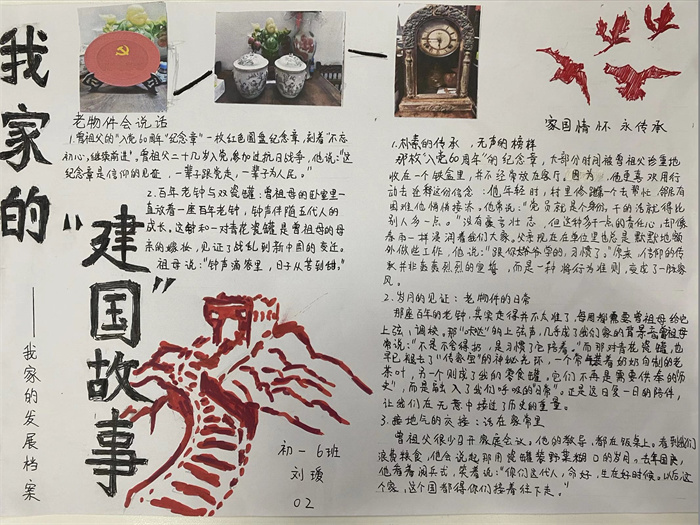 我家的
"建国故事"
——我家的发展档案
老物件会说话
1.曾祖父的"入党60周年"纪念章"一枚红色圆盘纪念章,刻着"不忘
初心,继续前进"。曾祖父二十几岁入党,参加过抗日战争,他说:"这
纪念章是信仰的见证,一辈子跟党走,一辈子为人民。"
2.百年老钟与双瓷罐:曾祖母的卧室里一
直放着一座百年老钟,钟声伴随五代人的
成长。这钟和一对青花瓷罐是曾祖母的母
亲的嫁妆,见证了战乱到新中国的变迁。
祖母说:"钟声滴答里,日子从苦到甜。"
初一6班
刘瑷
02
家国情怀 永传承
1.朴素的传承,无声的榜样
那枚"入党60周年"的纪念章,大部分时间被曾祖父珍重地
收在一个铁盒里,并不经常放在客厅。因为,他更喜欢用行
动去诠释这份信念:他年轻时,村里修路第一个去帮忙,邻居有
困难他悄悄接济。他常说:"党员就是个身份,干的活就得比
别人多一点。"没有豪言壮志,但这种多干一点的责任心,却像
春雨一样浸润着我们大家。父亲现在在单位里也总是默默地额
外做些工作,他说:"跟你爷爷学的,习惯了。"原来,信仰的传
承并非轰轰烈烈的宣誓,而是一种将行为准则,变成了一脉家
风。
2.岁月的见证:老物件的日常
那座百年的老钟,其实走得并不太准了,每周都需要曾祖母给它
上弦、调校。那"哒哒"的上弦声,几乎成了我们家的背景音,曾祖母
常说:"不是不舍得扔,是习惯了它陪着。"而那对青花瓷罐,也
早已褪去了"传家宝"的神秘光环,一个常年装着奶奶自制的老
茶叶,另一个则成了我的零食罐。它们不再是需要供奉的"历
史",而是融入了我们呼吸的"日常"。正是这日复一日的陪伴,
让我们在无意中接过了历史的重量。
3.接地气的交接:话在家常里
曾祖父很少召开家庭会议,他的教导,都在饭桌上。看到我们
浪费粮食,他会说起那用瓷罐装野菜糊口的岁月。去年国庆,
他看着阅兵式,笑着说:"你们这代人,命好,生在好时候。以后这
个家,这个国都得你们接着往下走。"